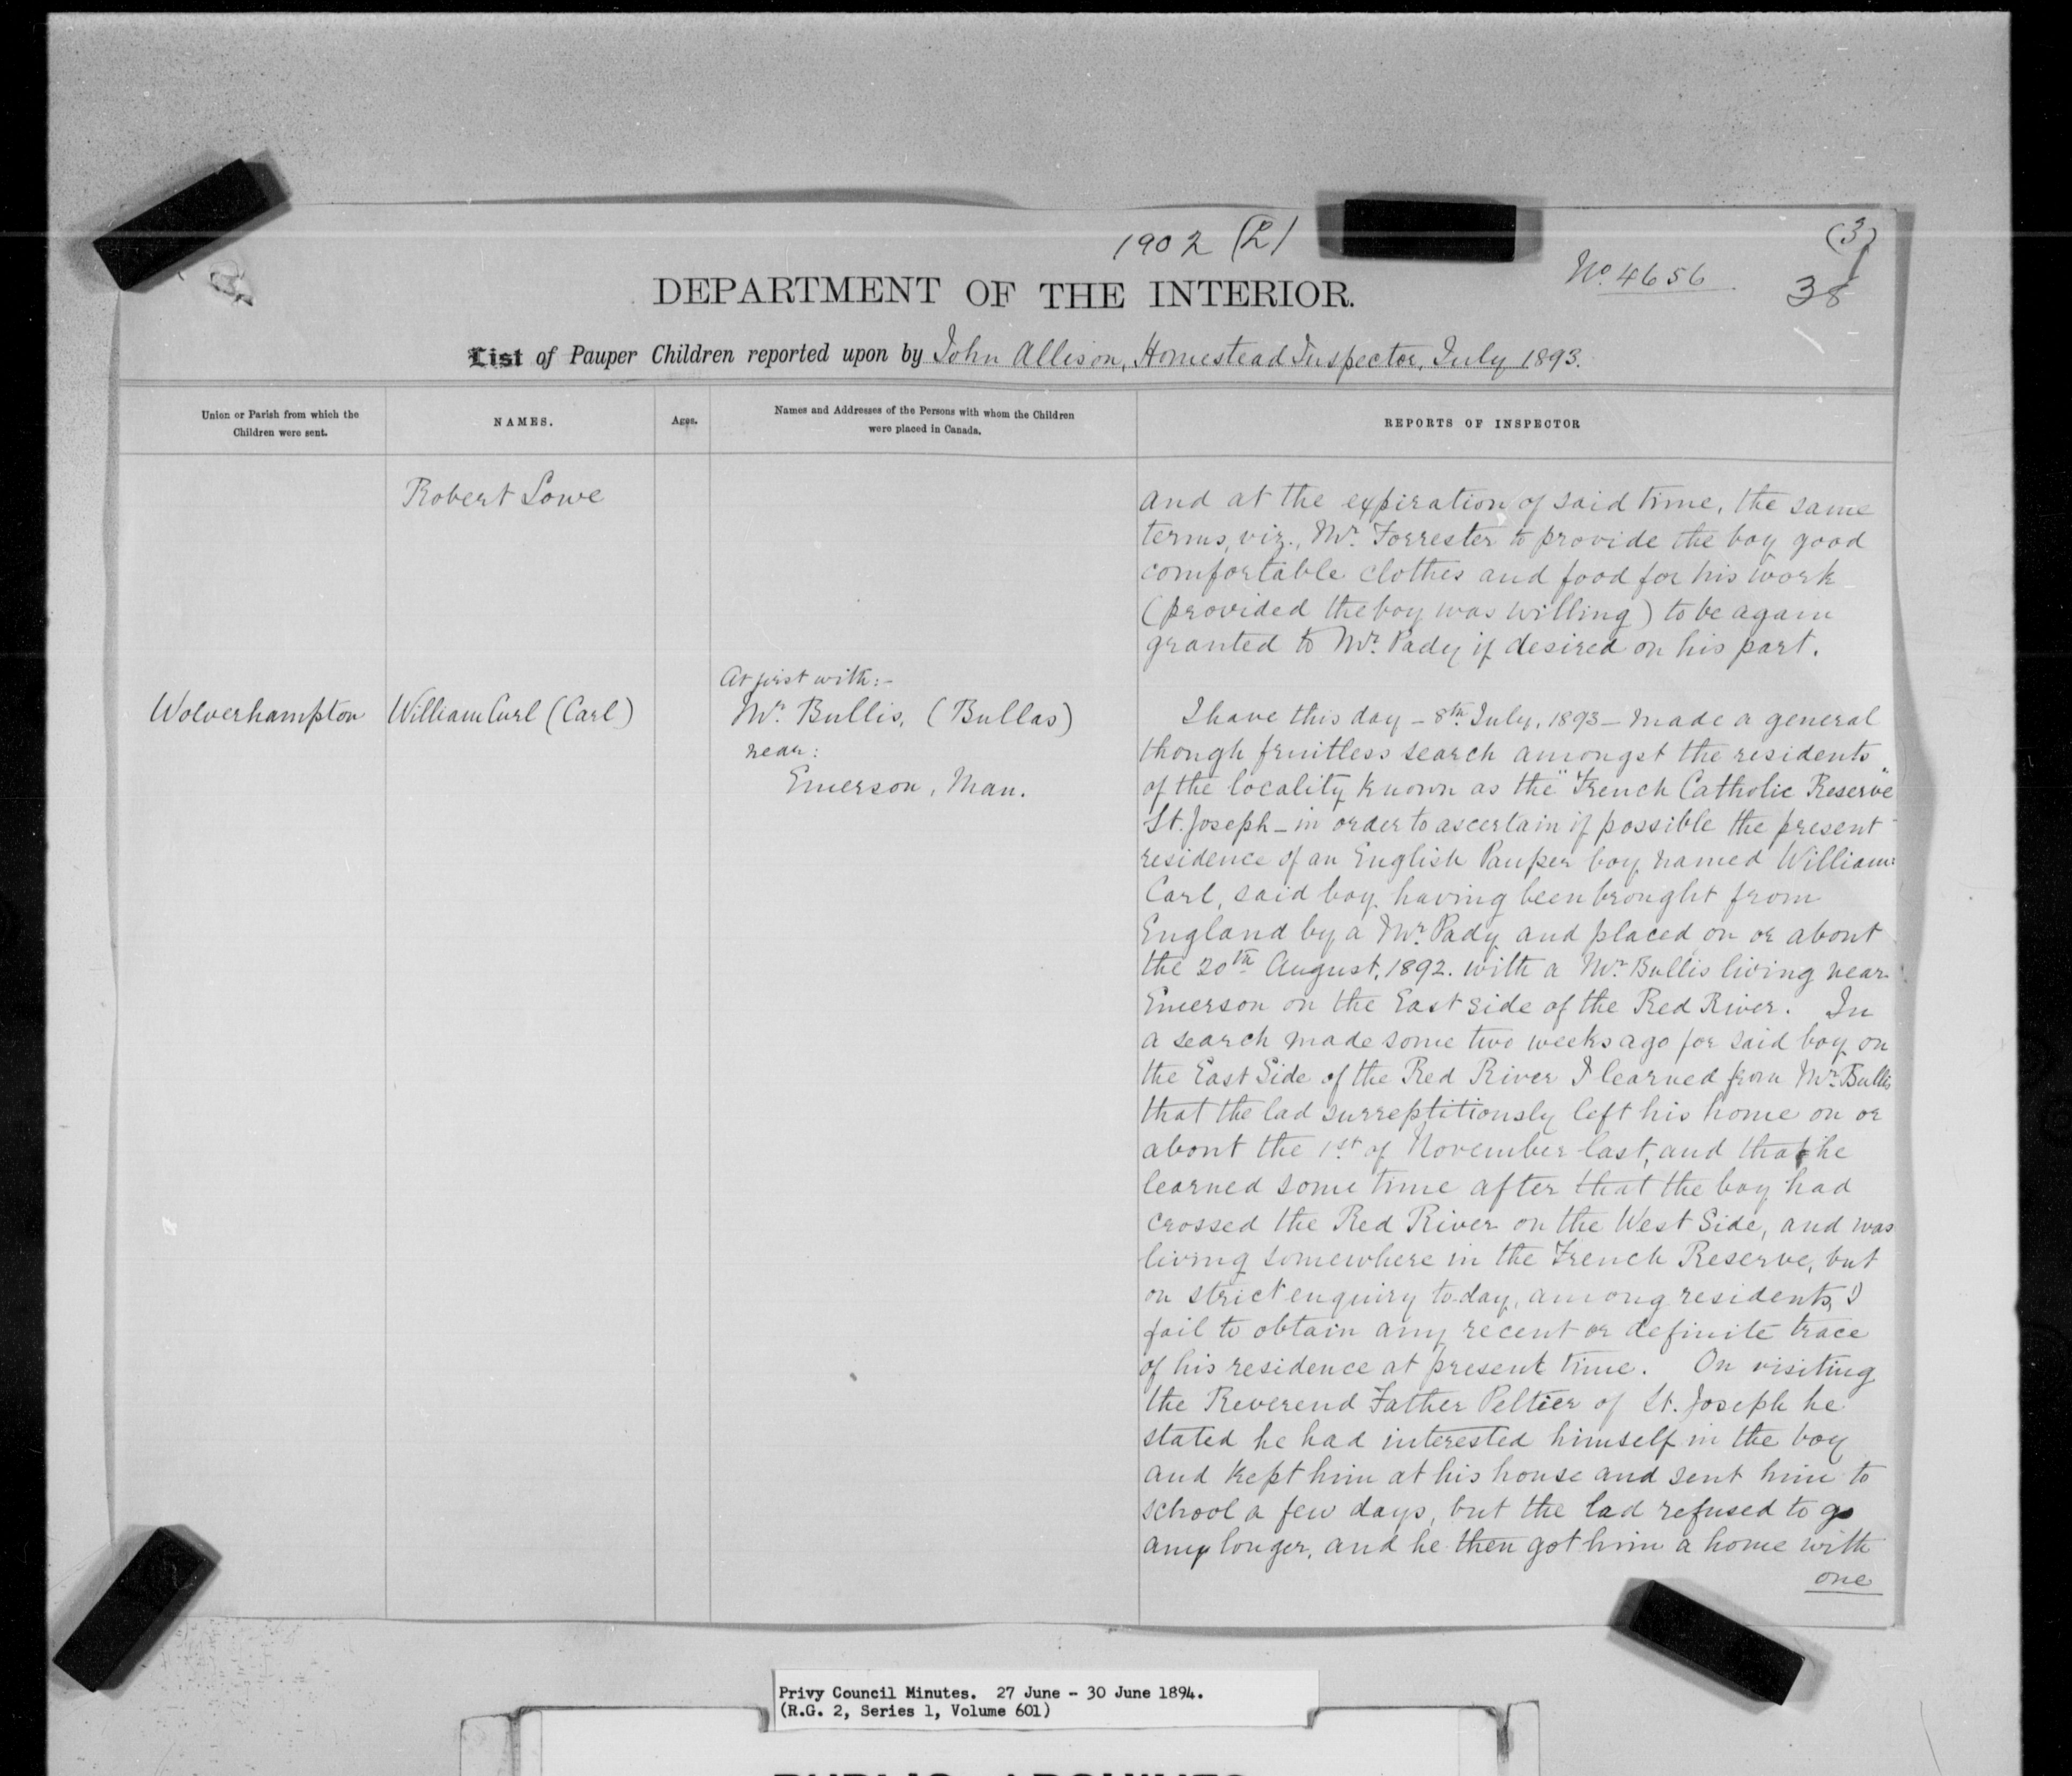 1902 (2)
(3)
No. 4656
38
DEPARTMENT OF THE INTERIOR.
List of Pauper Children reported upon by John Allison, Homestead Inspector, July 1893.
Union or Parish from which the
Children were sent.
NAMES.
Ages.
Names and Addresses of the Persons with whom the Children
were placed in Canada.
REPORTS OF INSPECTOR
Robert Lowe
and at the expiration of said time, the same
terms, viz., Mr. Forrester to provide the boy good
comfortable clothes and food for his work
(provided the boy was willing) to be again
granted to Mr. Pady if desired on his part.
Wolverhampton
William Curl (Carl)
At first with:-
Mr. Bullis, (Bullas)
near:
Emerson, Man.
I have this day – 8th July, 1893 – made a general
though fruitless search amongst the residents
of the locality known as the "French Catholic Reserve"
St. Joseph – in order to ascertain if possible the present
residence of an English Pauper boy named William
Carl, said boy having been brought from
England by a Mr. Pady and placed on or about
the 20th August, 1892. with a Mr. Bullis living near
Emerson on the East side of the Red River. In
a search made some two weeks ago for said boy on
the East Side of the Red River I learned from Mr. Bullis
that the lad surreptitiously left his home on or
about the 1st of November last, and that he
learned some time after that the boy had
crossed the Red River on the West Side, and was
living somewhere in the French Reserve, but
on strict enquiry to-day, among residents, I
fail to obtain any recent or definite trace
of his residence at present time. On visiting
the Reverend Father Peltier of St. Joseph he
stated he had interested himself in the boy
and kept him at his house and sent him to
school a few days, but the lad refused to go
any longer, and he then got him a home with
one
Privy Council Minutes. 27 June - 30 June 1894.
(R.G. 2, Series 1, Volume 601)
PUBLIC ARCHIVES